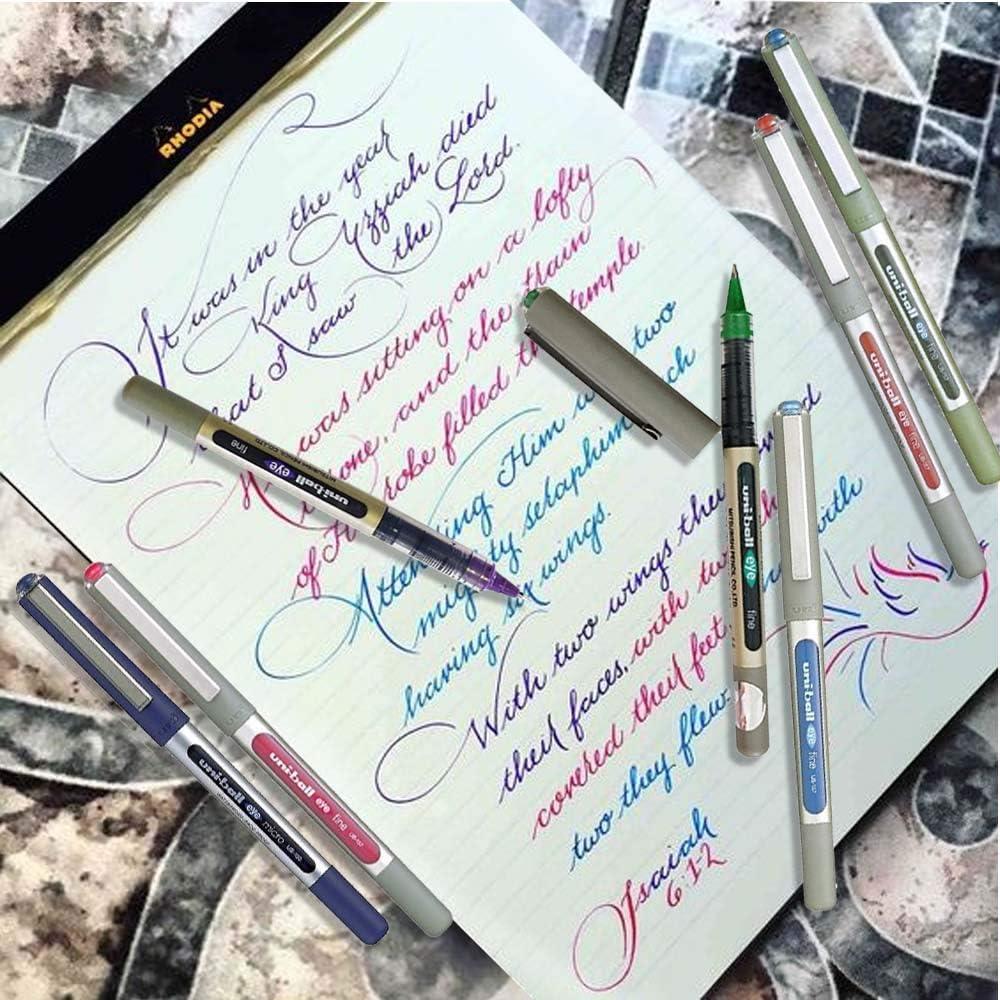 RHODIA
It was in the year
King Uzziah died
that I saw the Lord.
He was sitting on a lofty
throne, and the train
of His robe filled the temple.
Attending Him were two
mighty seraphim, each
having six wings.
With two wings they
their faces, with two
covered their feet with
two they flew.
Isaiah
6:1-2
uni-ball eye fine
MITSUBISHI PENCIL CO. LTD
uni-ball eye micro UB-150
uni-ball eye fine UB-157
uni-ball eye fine
MITSUBISHI PENCIL CO. LTD
uni-ball eye fine UB-157
uni-ball eye fine
uni-ball eye fine